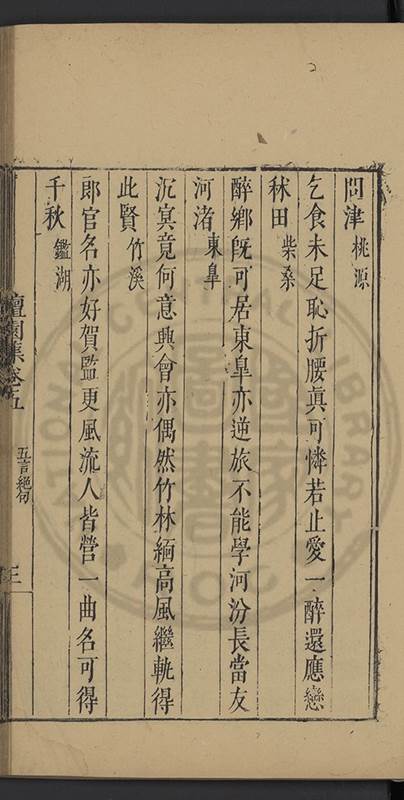 問津 桃源
乞食未足恥折腰眞可憐若止愛一醉還應戀
秫田 柴桑
醉鄉旣可居東皐亦逆旅不能學河汾長當友
河渚 東皐
沉冥竟何意興會亦偶然竹林緬高風繼軌得
此賢 竹溪
郎官名亦好賀監更風流人皆營一曲名可得
千秋 鑑湖
集卷五 五言絶句 三